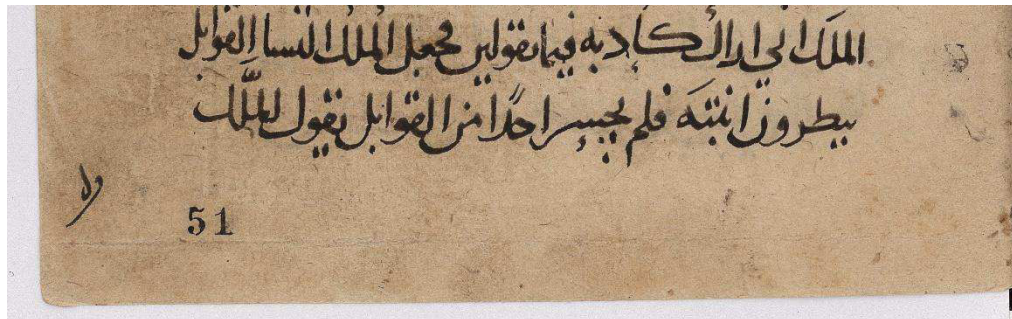 الملك اني اراك كادبه فيما تقولين فجعل الملك النسا القوابل
ينظرون ابنته فلم يجسر احدا من القوابل يقول للملك
ولا
51